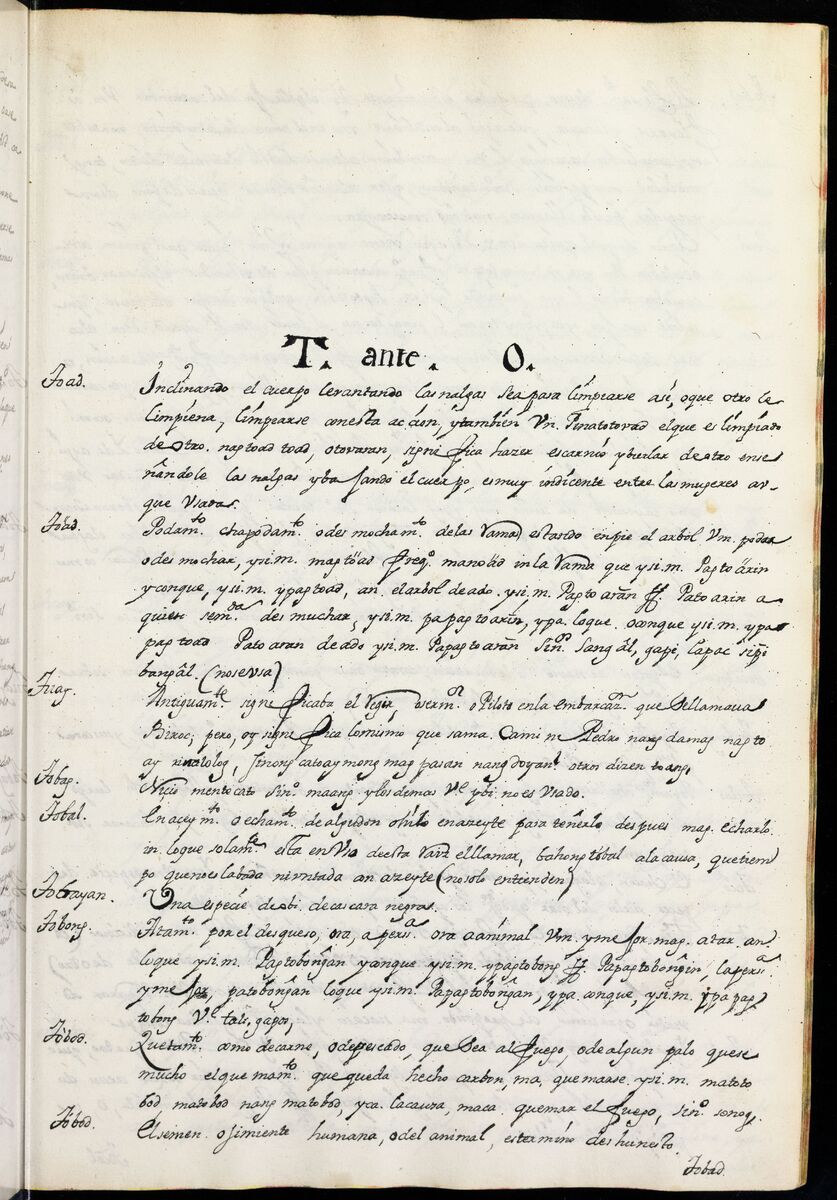 T. ante. O.
Toad. Inclinando el cuerpo levantando las nalgas sea para limpiarse asi, o que otro le
limpiena, limpiarse con esta acçion, ytambien Vn. Pinatotovad elque es limpiado
de otro. nagtoad toad, otovaran, significa hazer escarnio y burlar de otro ense
ñandole las nalgas y baxando el cuerpo, es muy indicente entre las mugeres a v-
que Viadas.
Toad. Podam.to chapodam.to o desmocham.to de las Ramas estando en pie el arbol Vm. podar
o desmochar, y si. m. magtoad freq.o in la Rama que y si. m. Pagtoarin
yconque, y si. m. ypagtoad, an. el arbol de ado. y si. m. Pagtoaran ff. Patoarin a
quien se m.da desmuchar, y si. m. papagtoarin, ypa. loque. conque y si. m. ypa
pagtoad Patoaran de ado y si. m. Papagtoaran Sin.o Sangal, gapi, Capac
bangal. (no se Vsa)
Antiguam.te significaba el o Piloto en la embarcaz.n que se llamava
Biroc; pero, oy significa lo mismo que sama. Cami ni Pedro nang damag nagto
ay Sinong catoaymong mag pasan nang doyan? otros dizen toang.
Tobag. Necio mentecato Sin.o maang y los demas V.e ybi no es Vsado.
Tobal. Enaceym.to o echam.to de algudon o hilo en azeyte para teñirlo despues mag. echarlo.
in. loque solam.te esta en Vso de esta Raiz ellamar, bahong tobal a la causa, que tiem
po que no es labada ni an azeyte (no solo entienden)
Tobayan. Una especie de obi. de cascara negra.
Tobong. Atam.to por el desqueso, ora, a pers.a ora a animal Vm. y me Jor. mag. atar. an.
loque y si. m. Pagtobongan yconque y si. m. ypagtobong ff. Papagtobongin, la pers.a
y me Jor patobongan loque y si. m. Papagtobongan, ypa. conque, y si. m. ypapag
tobong V.e tali, gapos,
Tobod. Quemam.to como de carne, o de pescado, que sea al fuego, o de algun palo que se
mucho el que mam.to que queda hecho carbon, ma, quemarse. y si. m. matoto
bod, matobod nang matobod, yca. la cauza, maca. quemar el fuego, sin.o sonog.
Tobod. El semen. o simiente humana, o del animal, es termino deshunesto.
Tobad.